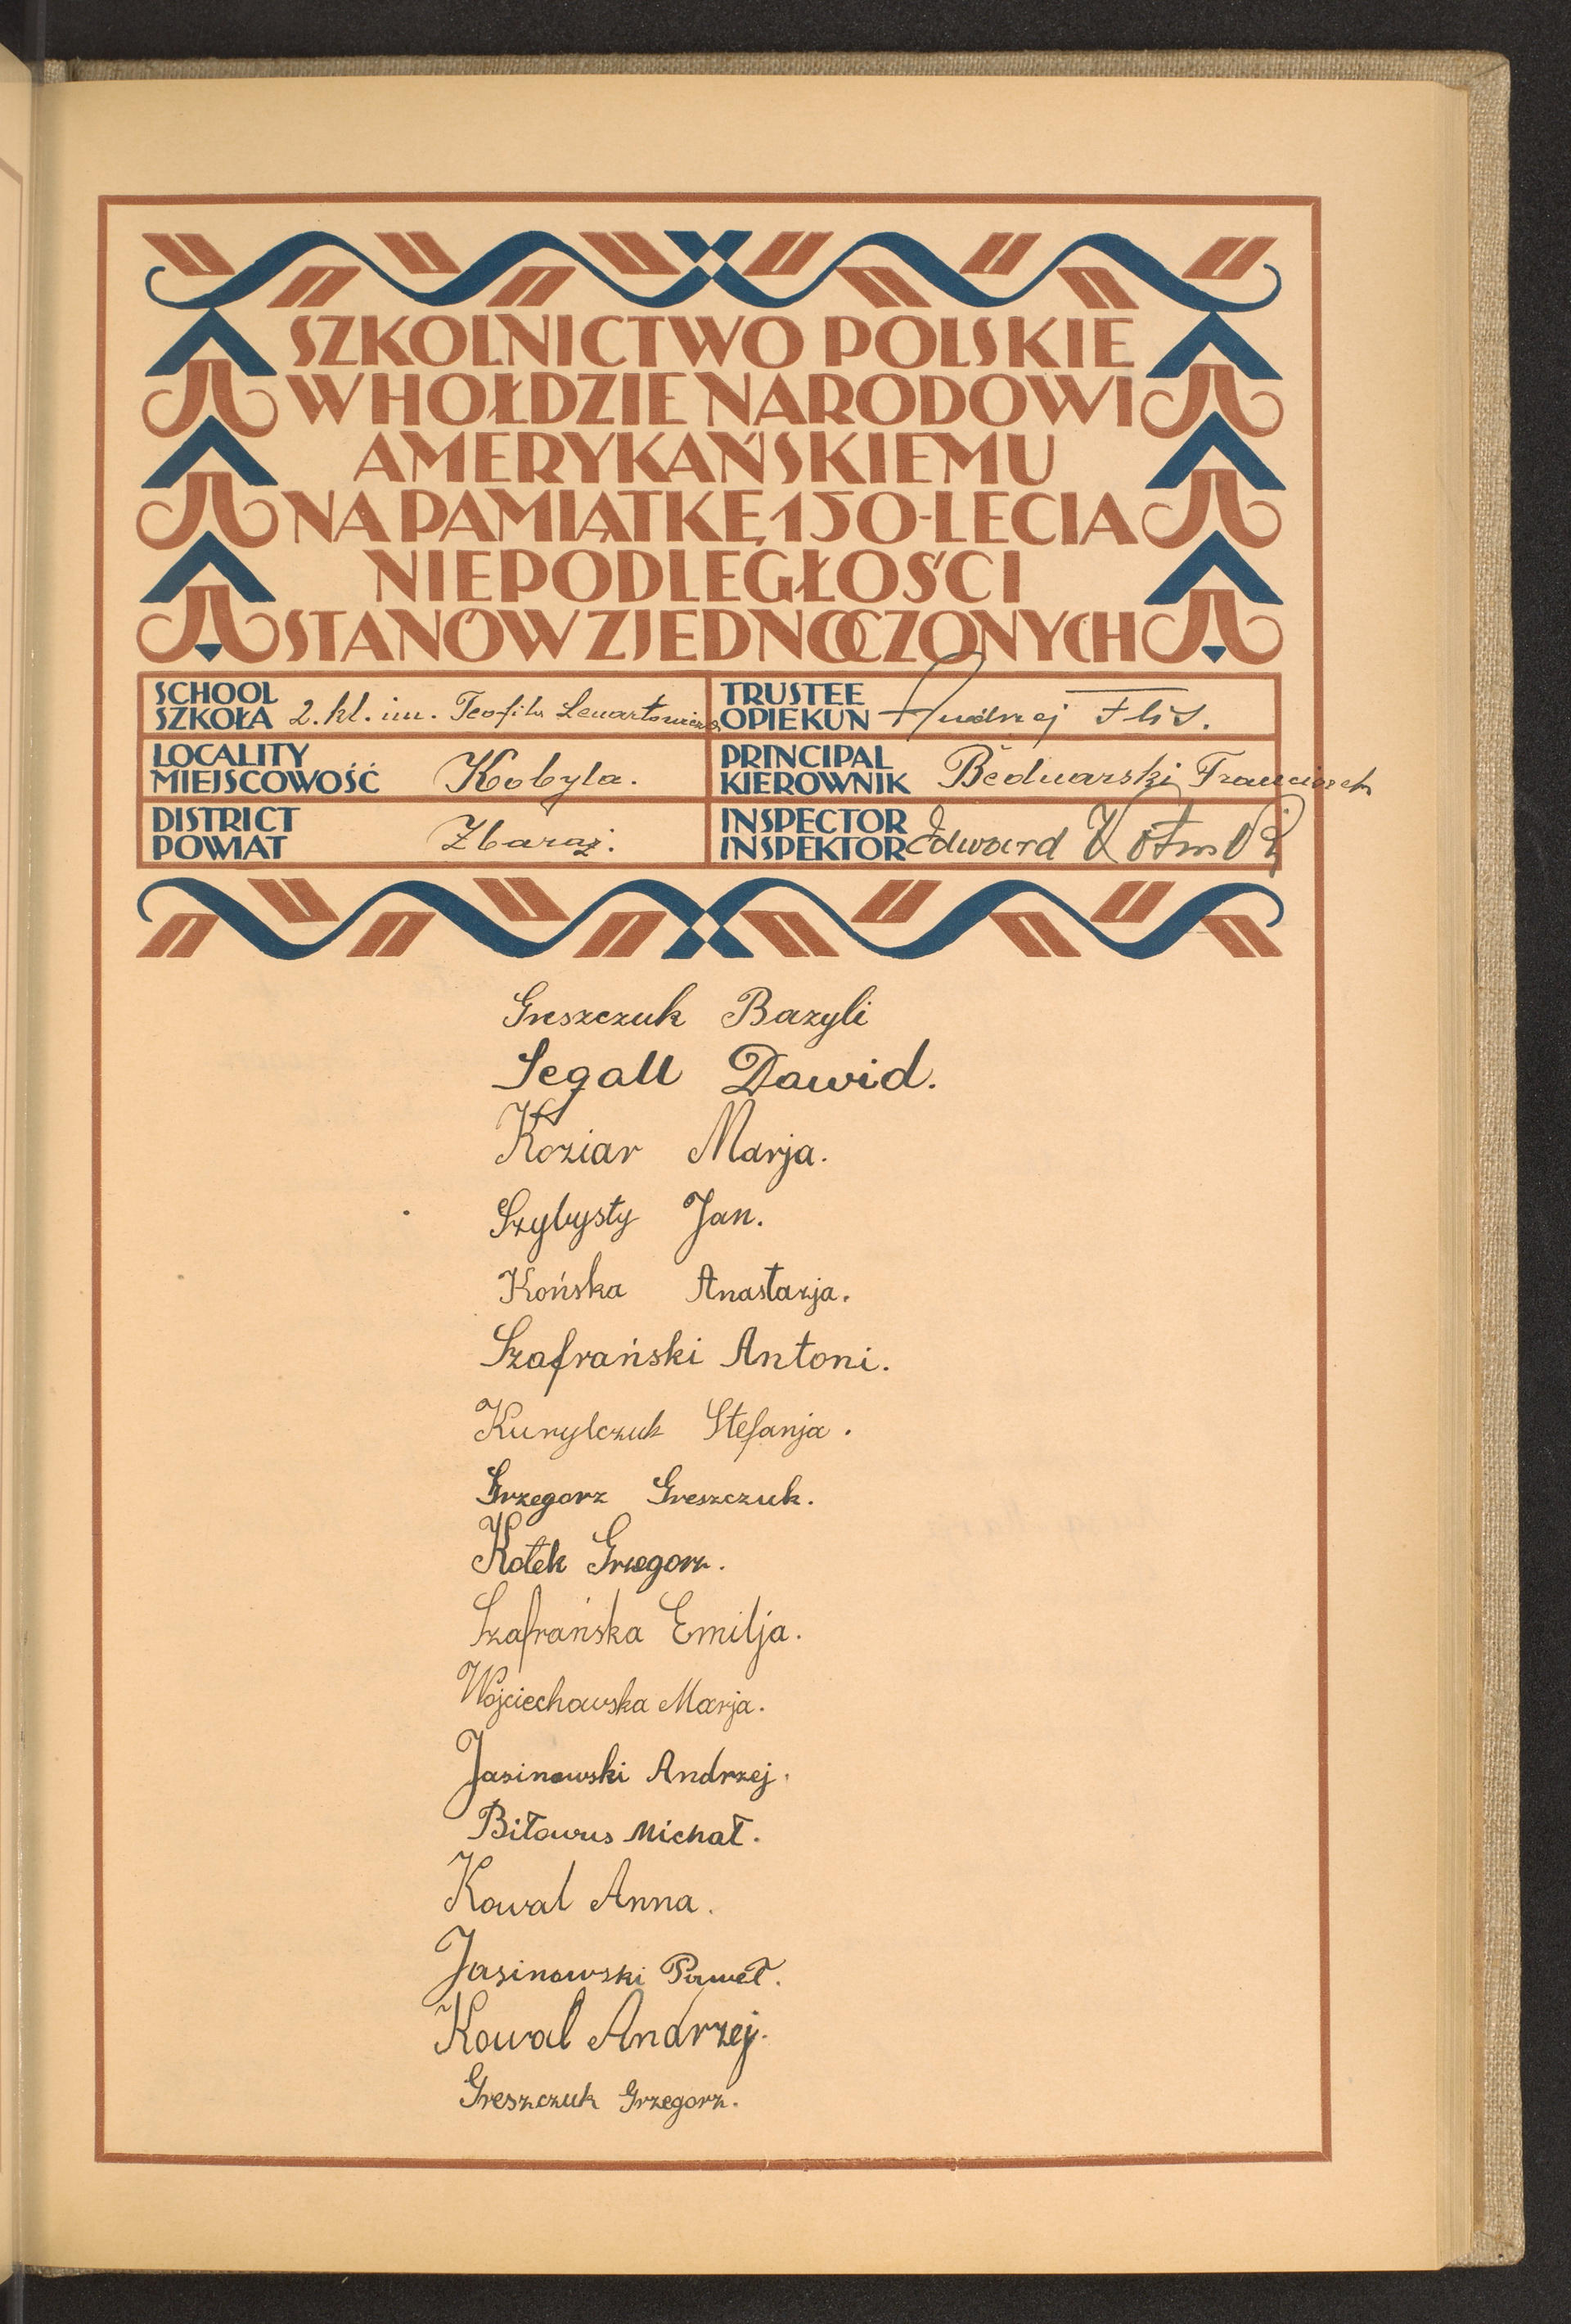 SZKOLNICTWO POLSKIE
W HOŁDZIE NARODOWI
AMERYKAŃSKIEMU
NA PAMIĄTKĘ 150-LECIA
NIEPODLEGŁOŚCI
STANÓW ZJEDNOCZONYCH
SCHOOL
SZKOŁA 2. kl. im. Teofila Lenartowicza
TRUSTEE
OPIEKUN Andrzej Flis.
LOCALITY
MIEJSCOWOŚĆ Kobyla.
PRINCIPAL
KIEROWNIK Bednarski Franciszek
DISTRICT
POWIAT Zbaraż.
INSPECTOR
INSPEKTOR Edward
Greszczuk Bazyli
Segall Dawid.
Koziar Marja.
Szybysty Jan.
Końska Anastazja.
Szafrański Antoni.
Kurylczuk Stefanja.
Grzegorz Greszczuk.
Kotek Grzegorz.
Szafrańska Emilja.
Wojciechowska Marja.
Jasinowski Andrzej.
Biłowus Michał.
Kowal Anna.
Jasinowski Paweł.
Kowal Andrzej.
Greszczuk Grzegorz.